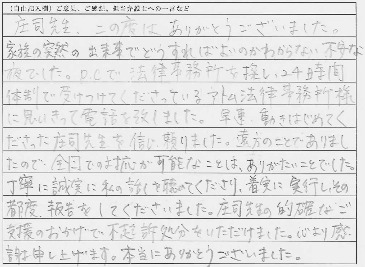 (自由記入欄)ご意見、ご感想、担当弁護士への一言など
庄司先生、この度はありがとうございました。
家族の突然の出来事でどうすればよいのかわからない不安な
夜でした。P.Cで法律事務所を捜し24時間
体制で受けつけてくださっているアトム法律事務所様
に思いきって電話を致しました。早速、動きはじめてく
ださった庄司先生を信じ頼りました。遠方のことでありまし
たので、全国での対応が可能なことは、ありがたいことでした。
丁寧に誠実に私の話しを聴いてくださり、着実に実行しその
都度、報告をしてくださいました。庄司先生の的確なご
支援のおかげで不起訴処分をいただけました。心より感
謝申し上げます。本当にありがとうございました。